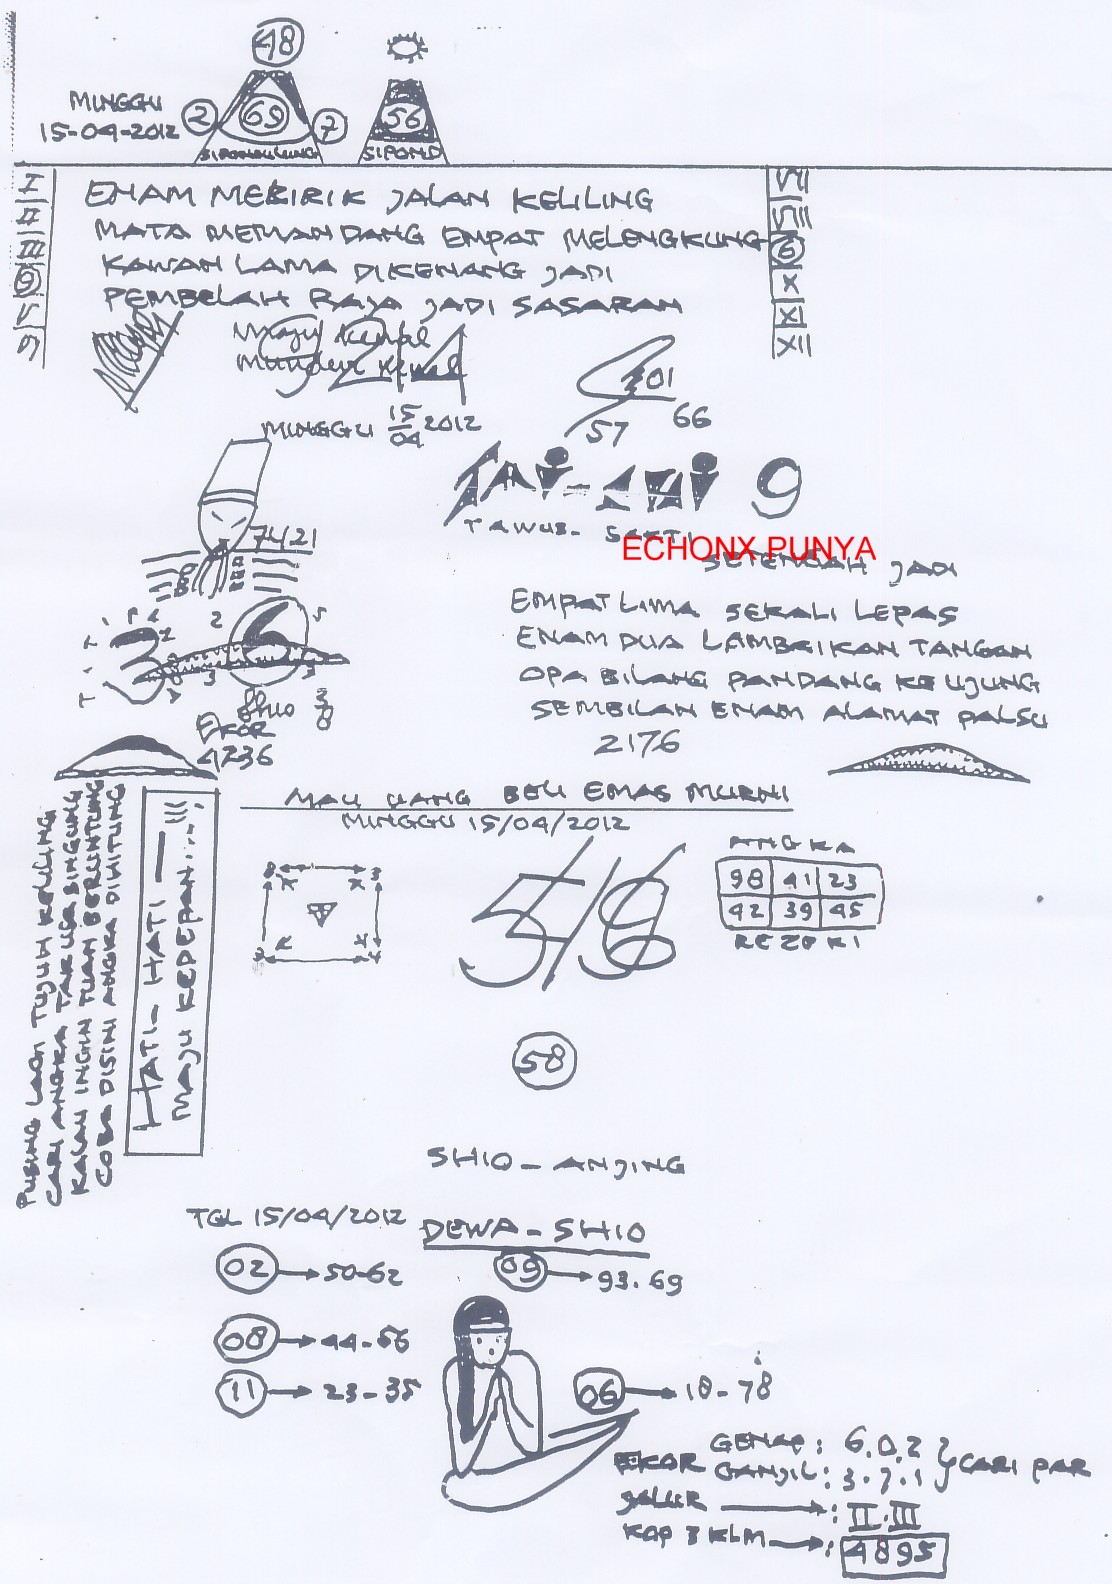 48
MINGGU
15-04-2012
2
69
7
56
SIPOND
I
II
III
9
V
VII
VIII
6
X
XI
XII
ENAM MELIRIK JALAN KELILING
MATA MEMANDANG EMPAT MELENGKUNG
KAWAN LAMA DIKENANG JADI
PEMBELAH RAJA JADI SASARAN
MINGGU 15/04 2012
01
57
66
9
TAWUB- SAKTI
ECHONX PUNYA
SETENGAH JADI
EMPAT LIMA SEKALI LEPAS
ENAM DUA LAMBAIKAN TANGAN
OPA BILANG PANDANG KE UJUNG
SEMBILAN ENAM ALAMAT PALSU
2176
7421
3
6
2
5
3
Shio 3/8
EKOR
4736
MAU UANG BELI EMAS MURNI
MINGGU 15/04/2012
5/8
ANGKA
98 41 23
42 39 45
REZEKI
58
PUSING LAGI TUJUH KELILING
CARI ANGKA TAK USA BINGUNG
KALAU INGIN TUAN BERUNTUNG
COBA DISINI ANGKA DIHITUNG
HATI-HATI — !!!
MAJU KEDEPAN....,,
SHIO-ANJING
TGL 15/04/2012
DEWA-SHIO
02 → 50-62
09 → 93.69
08 → 44-56
11 → 23-35
06 → 18-78
EKOR GENAP: 6.0.2 } CARI PAR
GANJIL: 3.7.1
JALUR → : II.III
KOP 3 KLM → : 4895